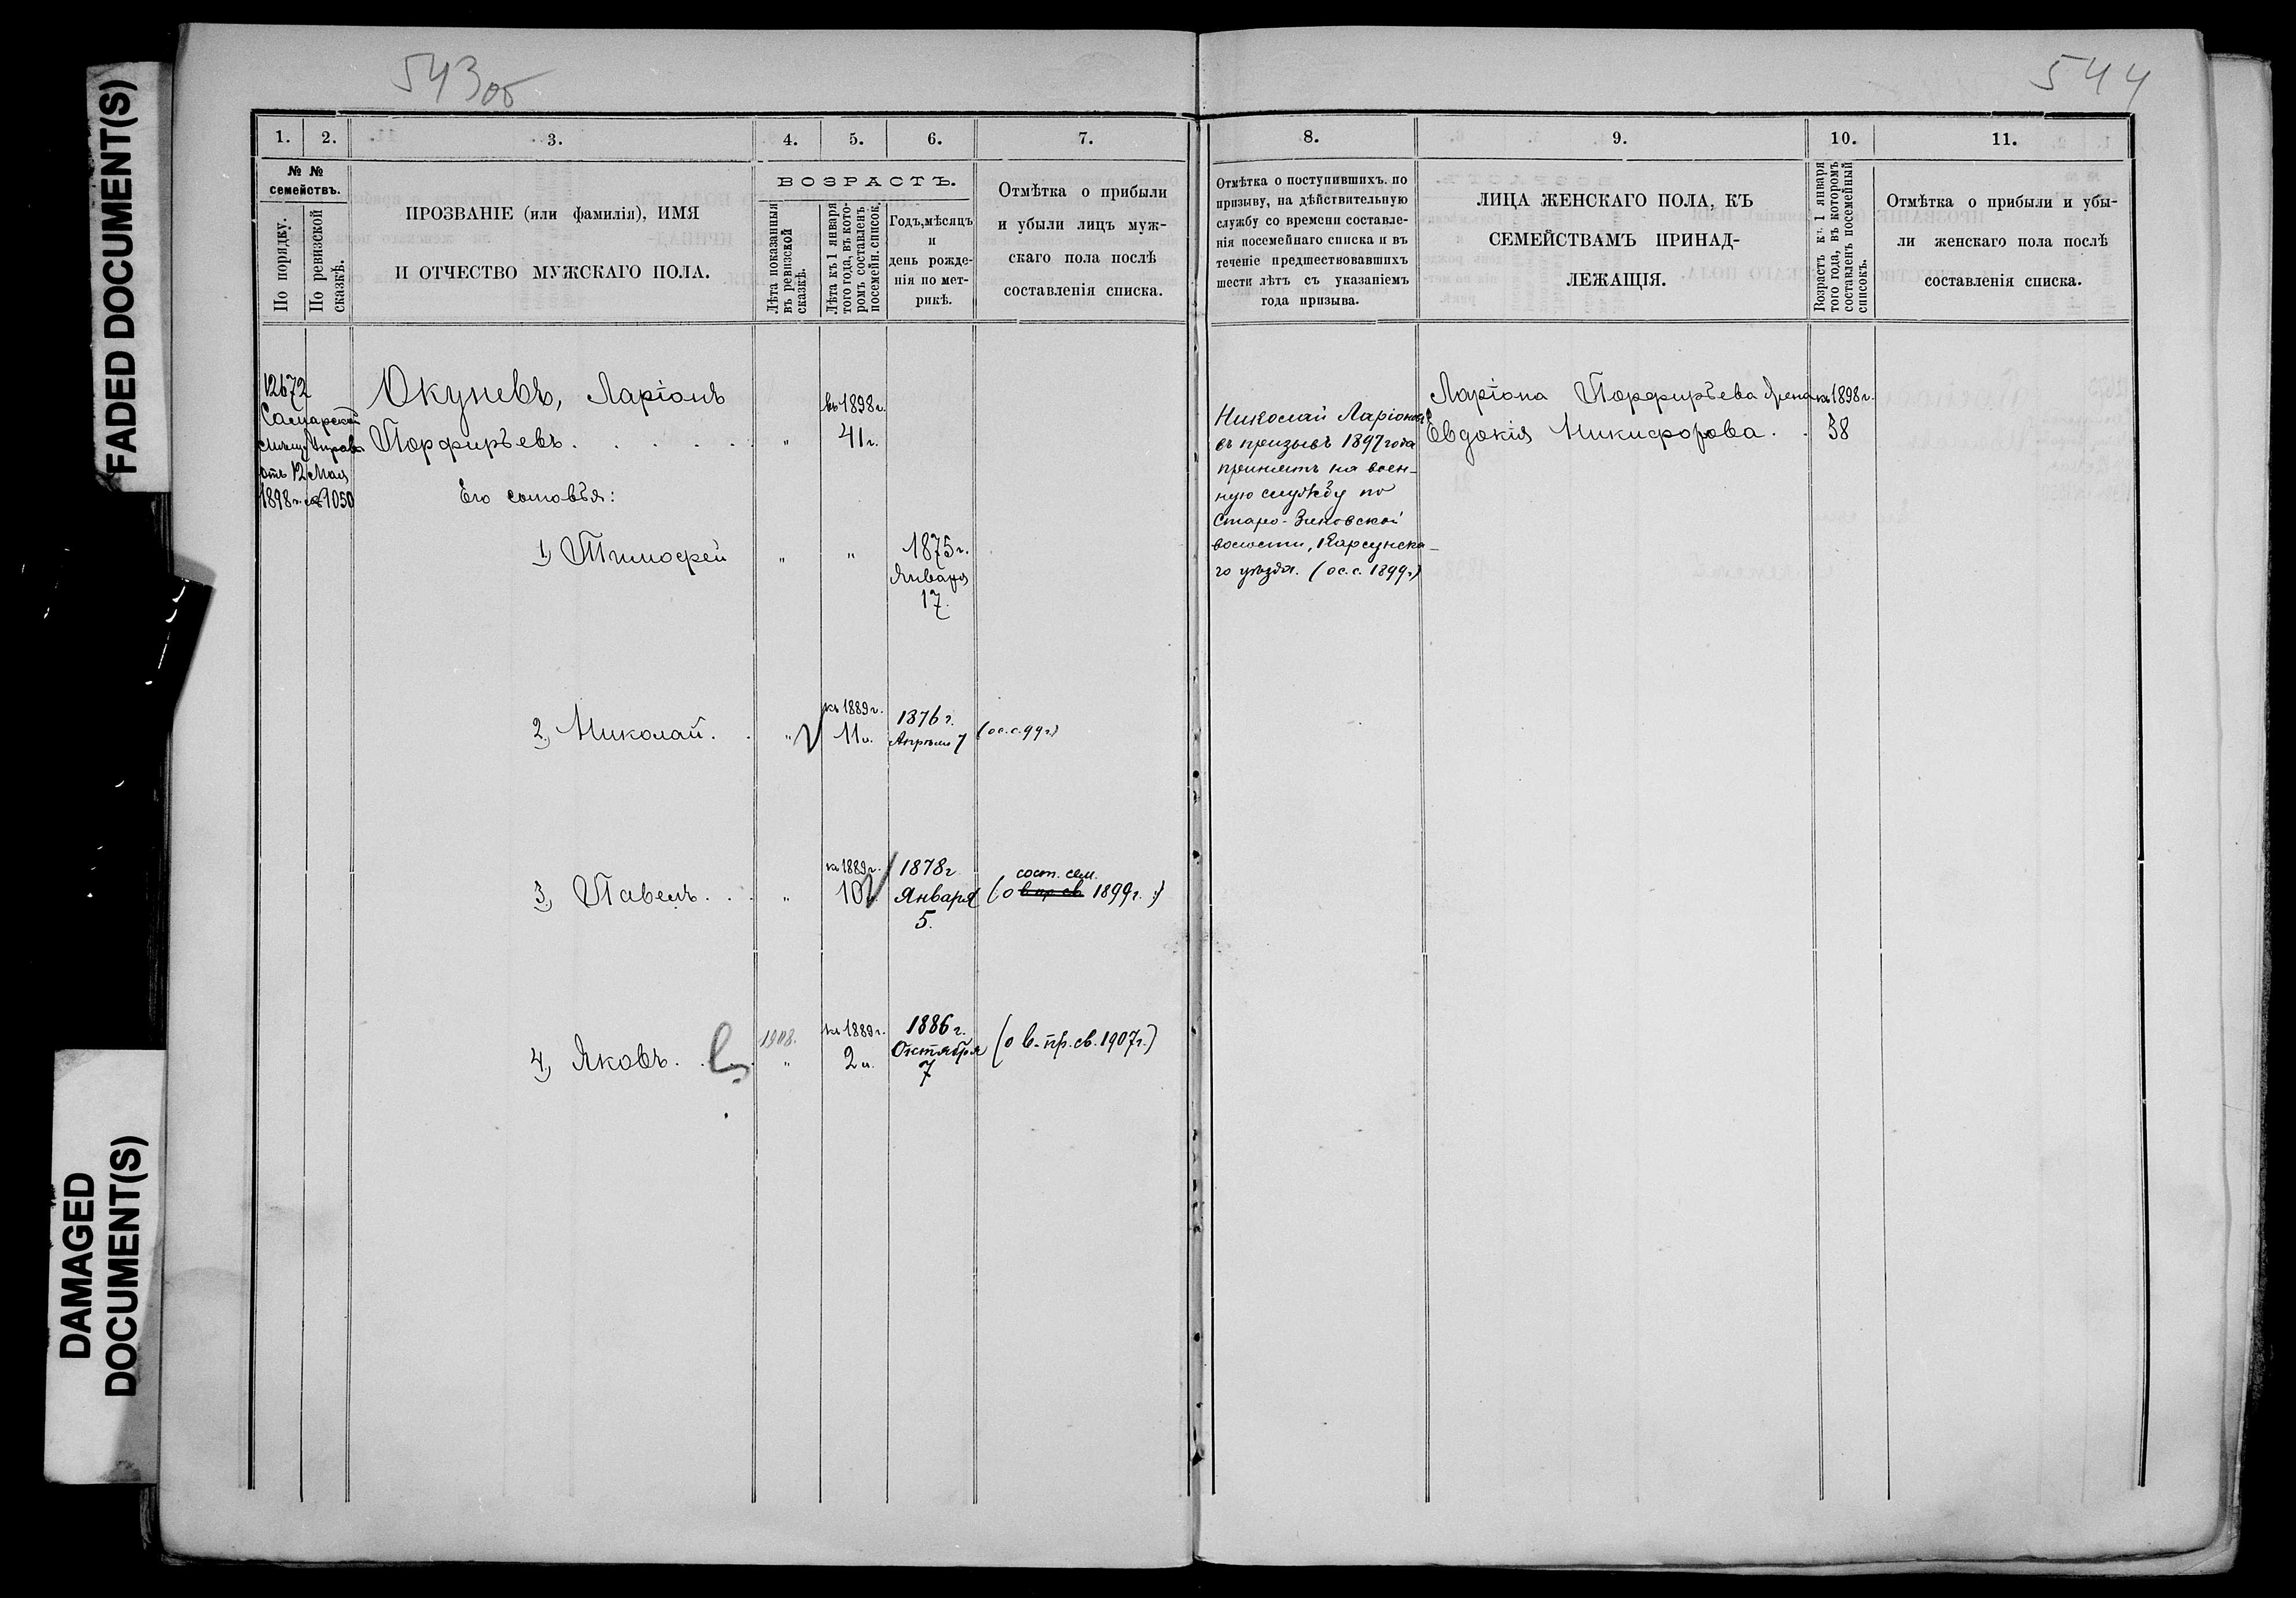 FADED DOCUMENT(S)
DAMAGED
DOCUMENT(S)
543об
1. 2. 3. 4. 5. 6. 7.
№ №
семействъ.
По порядку.
По ревизской
сказкѣ.
ПРОЗВАНІЕ (или фамилія), ИМЯ
И ОТЧЕСТВО МУЖСКАГО ПОЛА.
ВОЗРАСТЪ.
Лѣта показанныя
въ ревизской
сказкѣ.
Лѣта къ 1 января
того года, въ кото-
ромъ составленъ
посемейн. список.
Годъ, мѣсяцъ
и
день рожде-
нія по мет-
рикѣ.
Отмѣтка о прибыли
и убыли лицъ муж-
скаго пола послѣ
составленія списка.
12672
Самарской
Управ.
отъ 12 Мая
1898 г. № 1050
Окуневъ, Ларіонъ
Порфирьевъ . . . . . "
въ 1898 г.
41 г.
Его сыновья:
1) Тимофей " "
1875 г.
Января
17.
2) Николай. . "
къ 1889 г.
11 л.
1876 г.
Апрѣля 7
(ос. с. 99 г.)
3) Павелъ . . . "
къ 1889 г.
10 л.
1878 г.
Января
5.
сост. сем.
(о 1899 г.)
4) Яковъ. . . "
1908.
къ 1889 г.
2 л.
1886 г.
Октября
7
(о в. пр. св. 1907 г.)
544
8. 9. 10. 11.
Отмѣтка о поступившихъ. по
призыву, на дѣйствительную
службу со времени составле-
нія посемейнаго списка и въ
теченіе предшествовавшихъ
шести лѣтъ съ указаніемъ
года призыва.
ЛИЦА ЖЕНСКАГО ПОЛА, КЪ
СЕМЕЙСТВАМЪ ПРИНАД-
ЛЕЖАЩІЯ.
Возрастъ къ 1 января
того года, въ которомъ
составленъ посемейный
списокъ.
Отмѣтка о прибыли и убы-
ли женскаго пола послѣ
составленія списка.
Николай Ларіоновъ
въ призывъ 1897 года
принятъ на воен-
ную службу по
Старо-Зиновской
волости, Карсунска-
го уѣзда. (ос. с. 1899 г.)
Ларіона Порфирьева жена
Евдокія Никифорова . .
къ 1898 г.
38